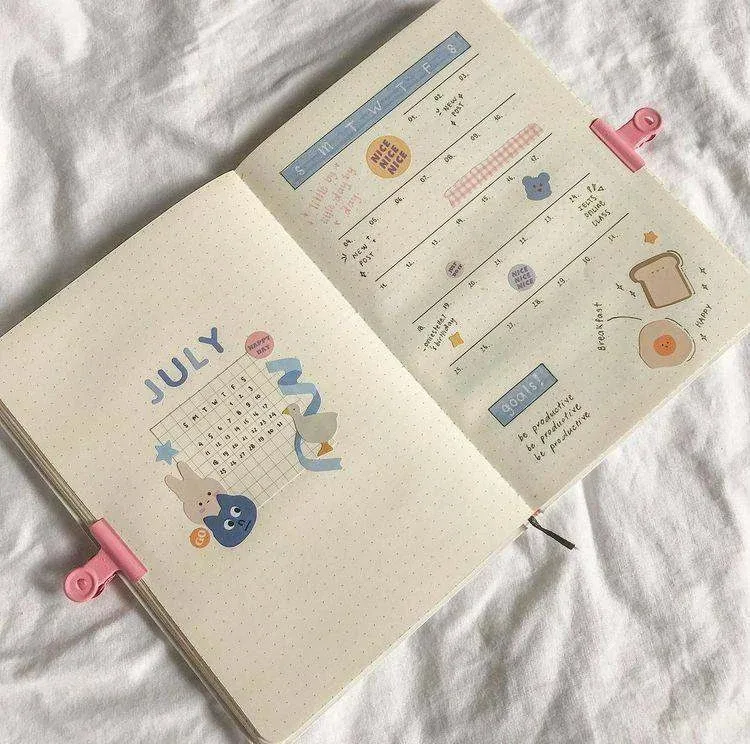 JULY
HAPPY
DAY
S M T W T F S
1 2 3
4 5 6 7 8 9 10
11 12 13 14 15 16 17
18 19 20 21 22 23 24
25 26 27 28 29 30 31
GO
S M T W T F S
01. 02. 03.
NEW
POST
NICE
NICE
NICE
day
04. 05. 06. 07. 08. 09. 10.
NEW
POST
11. 12. 13. 14. 15. 16. 17.
18. 19. 20. 21. 22. 23. 24.
IELTS
ONLINE
CLASS
NICE
NICE
NICE
birthday
25. 26. 27. 28. 29. 30.
Breakfast
HAPPY
goals!
be productive
be productive
be productive